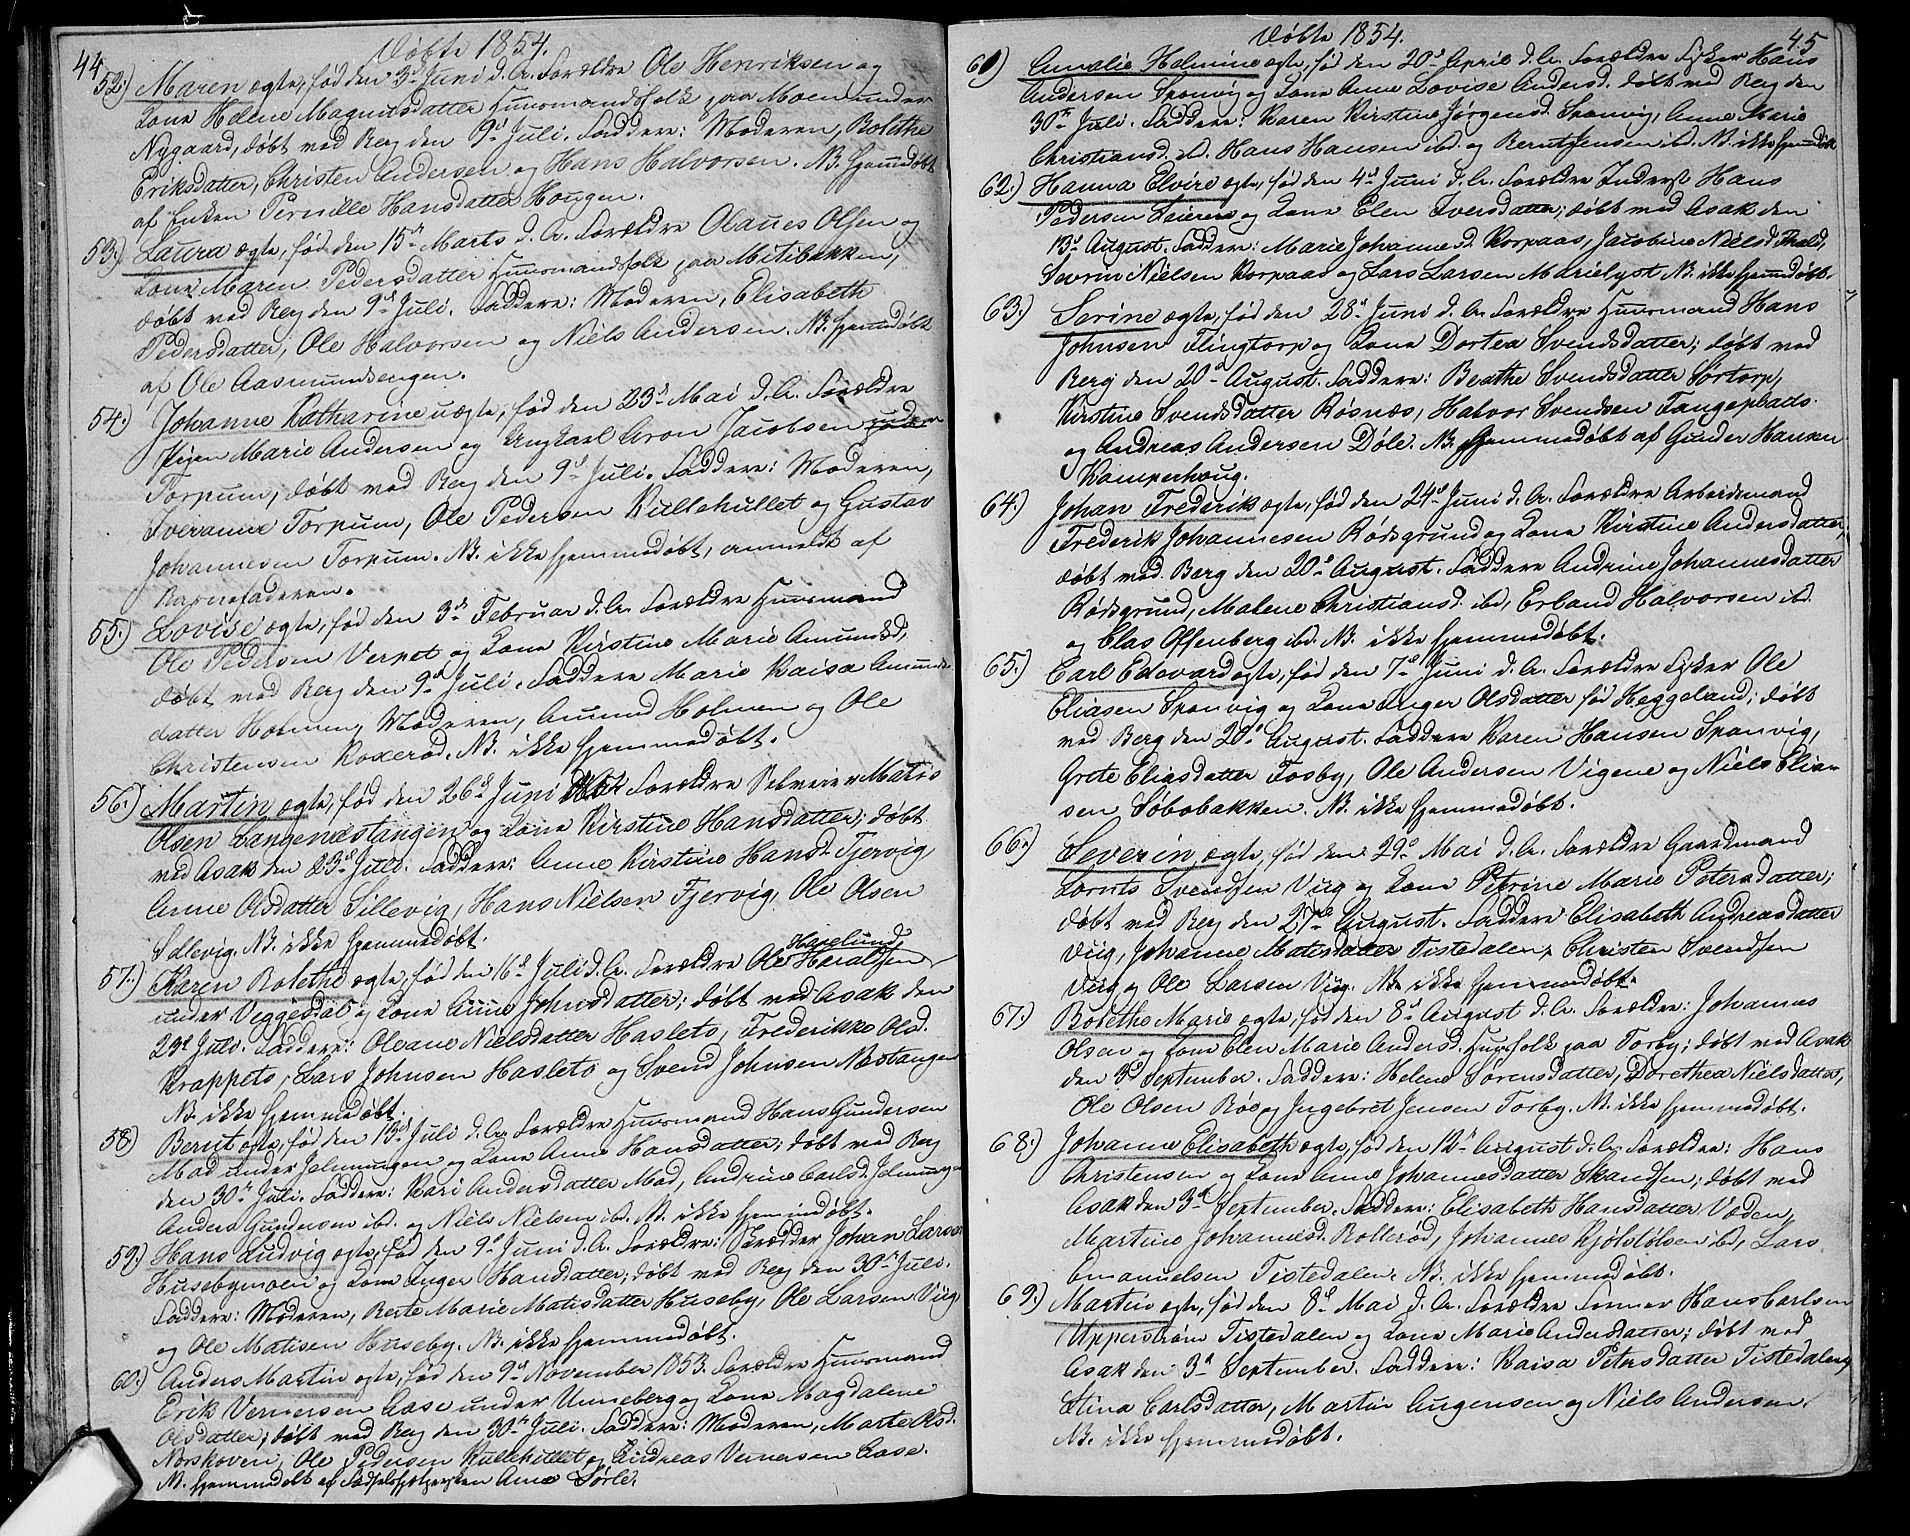 44
Døbte 1854.
52.) Maren ægte, fød den 3d Juni d. A. Forældre Ole Henriksen og
Kone Helene Magnusdatter Huusmandsfolk paa Moen under
Nygaard, døbt ved Berg den 9d Juli. Faddere: Moderen, Bolethe
Eriksdatter, Christen Andersen og Hans Halvorsen. NB. hjemmedøbt
af Enken Pernille Hansdatter Hougen.
53.) Laura ægte, fød den 15de Marts d. A. Forældre Olaues Olsen og
Kone Maren Pedersdatter Huusmandsfolk paa Mitibakken,
døbt ved Berg den 9d Juli. Faddere: Moderen, Elisabeth
Pedersdatter, Ole Halvorsen og Niels Andersen. NB. hjemmedøbt
af Ole Aasmundsengen.
54.) Johanne Katharine uægte, fød den 23d Mai d. A. Forældre
Pigen Marie Andersen og Ungkarl Aron Jacobsen
Torpum, døbt ved Berg den 9d Juli. Faddere: Moderen,
Iveranne Torpum, Ole Pedersen Kullehullet og Gustav
Johannesen Torpum. NB. ikke hjemmedøbt, anmeldt af
Barnefaderen.
55.) Lovise ægte, fød den 3de Februar d. A. Forældre Huusmand
Ole Pedersen Verpet og Kone Kirstine Marie Amundsd.
døbt ved Berg den 9d Juli. Faddere Marie Kaisa Amunds-
datter Holmen, Moderen, Amund Holmen og Ole
Christensen Roxerød. NB. ikke hjemmedøbt.
56.) Martin ægte, fød den 26d Juni Forældre Selveier Matis
Olsen Langenæstangen og Kone Kirstine Hansdatter; døbt
ved Asak den 23d Juli. Faddere: Anne Kirstine Hansd. Tjervig
Anne Olsdatter Sillevig, Hans Nielsen Tjervig, Ole Olsen
Sillevig. NB. ikke hjemmedøbt.
Haselund
57.) Karen Bolethe ægte, fød den 16d Juli d. A. Forældre Ole Haralsen
under Viggesdal og Kone Anne Johnsdatter; døbt ved Asak den
23d Juli. Faddere: Oleane Nielsdatter Hasleto, Frederikke Olsd.
Krappeto, Lars Johnsen Hasleto og Svend Johnsen Næstangen
NB. ikke hjemmedøbt.
58.) Bernt ægte, fød den 15de Juli d. A. Forældre Huusmand Hans Gundersen
Mad under Jelmungen og Kone Anne Hansdatter; døbt ved Berg
den 30te Juli. Faddere: Kari Andersdatter Mad, Andrine Carlsd. Jelmungen
Anders Gundersen ibd. og Niels Nielsen ibd. NB. ikke hjemmedøbt.
59.) Hans Ludvig ægte, fød den 9d Juni d. A. Forældre: Skrædder Johan Larsen
Husebymoen og Kone Inger Hansdatter; døbt ved Berg den 30te Juli.
Faddere: Moderen, Berte Marie Matisdatter Huseby, Ole Larsen Viig
og Ole Matisen Huseby. NB. ikke hjemmedøbt.
60.) Anders Martin ægte, fød den 9d November 1853. Forældre Huusmand
Erik Vernersen Aase under Unneberg og Kone Magdalene
Olsdatter, døbt ved Berg den 30te Juli. Faddere: Moderen, Marte Olsd.
Norskoven, Ole Pedersen Kullehullet og Andreas Vernersen Aase.
NB. hjemmedøbt af Anne Sørli.
Døbte 1854.
45
61) Amalie Helmine ægte, fød den 20d April d. A. Forældre Fisker Hans
Andersen Sponvig og Kone Anne Lovise Andersd. døbt ved Berg den
30te Juli. Faddere: Karen Kirstine Jørgensd. Sponvig, Anne Marie
Christiansd. ibd. Hans Hansen ibd. og Bernt Jensen ibd. NB. ikke hjemmedøbt
62.) Hanna Elvire ægte, fød den 4d Juni d. A. Forældre Inderst Hans
Pedersen Leieren og Kone Elen Iversdatter; døbt ved Asak den
13d August. Faddere: Marie Johannesd. Korpaas, Jacobine Nielsd.
Severin Nielsen Korpaas og Lars Larsen Marielyst. NB. ikke hjemmedøbt.
63.) Serine ægte, fød den 28d Juni d. A. Forældre Huusmand Hans
Johnsen Flingtorp og Kone Dortea Svendsdatter; døbt ved
Berg den 20d August. Faddere: Beathe Svendsdatter Sørtorp,
Kirstine Svendsdatter Røsnæs, Halvor Svendsen Tangeplads
og Andreas Andersen Døle. NB. hjemmedøbt af Gunder Hansen
Kamperhoug.
64.) Johan Frederik ægte, fød den 24d Juni d. A. Forældre Arbeidsmand
Frederik Johannesen Rødsgrund og Kone Kirstine Andersdatter,
døbt ved Berg den 20d August. Faddere Andrine Johannesdatter
Rødsgrund, Malene Christiansd. ibd, Erland Halvorsen ibd
og Clas Offenberg ibd. NB. ikke hjemmedøbt.
65.) Carl Edevard ægte, fød den 7d Juni d. A. Forældre Fisker Ole
Eliasen Sponvig og Kone Inger Olsdatter fød Heggeland; døbt
ved Berg den 20d August. Faddere Karen Hansen Sponvig,
Grete Eliasdatter Tosby, Ole Andersen Vigene og Niels Elia-
sen Søbobakken. NB. ikke hjemmedøbt.
66.) Severin ægte, fød den 29d Mai d. A. Forældre Gaardmand
Lornts Svendsen Viig og Kone Petrine Marie Petersdatter;
døbt ved Berg den 27de August. Faddere Elisabeth Andreasdatter
Viig, Johanne Matisdatter Tistedalen, Christen Svendsen
Viig og Ole Larsen Viig. NB. ikke hjemmedøbt.
67.) Bolethe Marie ægte, fød den 8d August d. A. Forældre: Johannes
Olsen og Kone Elen Marie Andersd. Huusfolk paa Torby; døbt ved Asak
den 3d September. Faddere: Helene Sørensdatter, Dorethea Nielsdatter,
Ole Olsen Røe og Ingebret Jensen Torby. NB. ikke hjemmedøbt.
68.) Johanne Elisabeth ægte, fød den 12te August d. A. Forældre: Hans
Christensen og Kone Anne Johannesdatter Skandsen; døbt ved
Asak den 3d September. Faddere: Elisabeth Hansdatter Veden,
Martine Johannesd. Rollerød, Johannes Kjølstølsen ibd, Lars
Emanuelsen Tistedalen. NB. ikke hjemmedøbt.
69.) Martin ægte, fød den 8d Mai d. A. Forældre Former Hans Carlsen
Upperstrøm Tistedalen og Kone Marie Andersdatter; døbt ved
Asak den 3d September. Faddere: Kaisa Petersdatter Tistedalen,
Stina Carlsdatter, Martin Augensen og Niels Andersen.
NB. ikke hjemmedøbt.